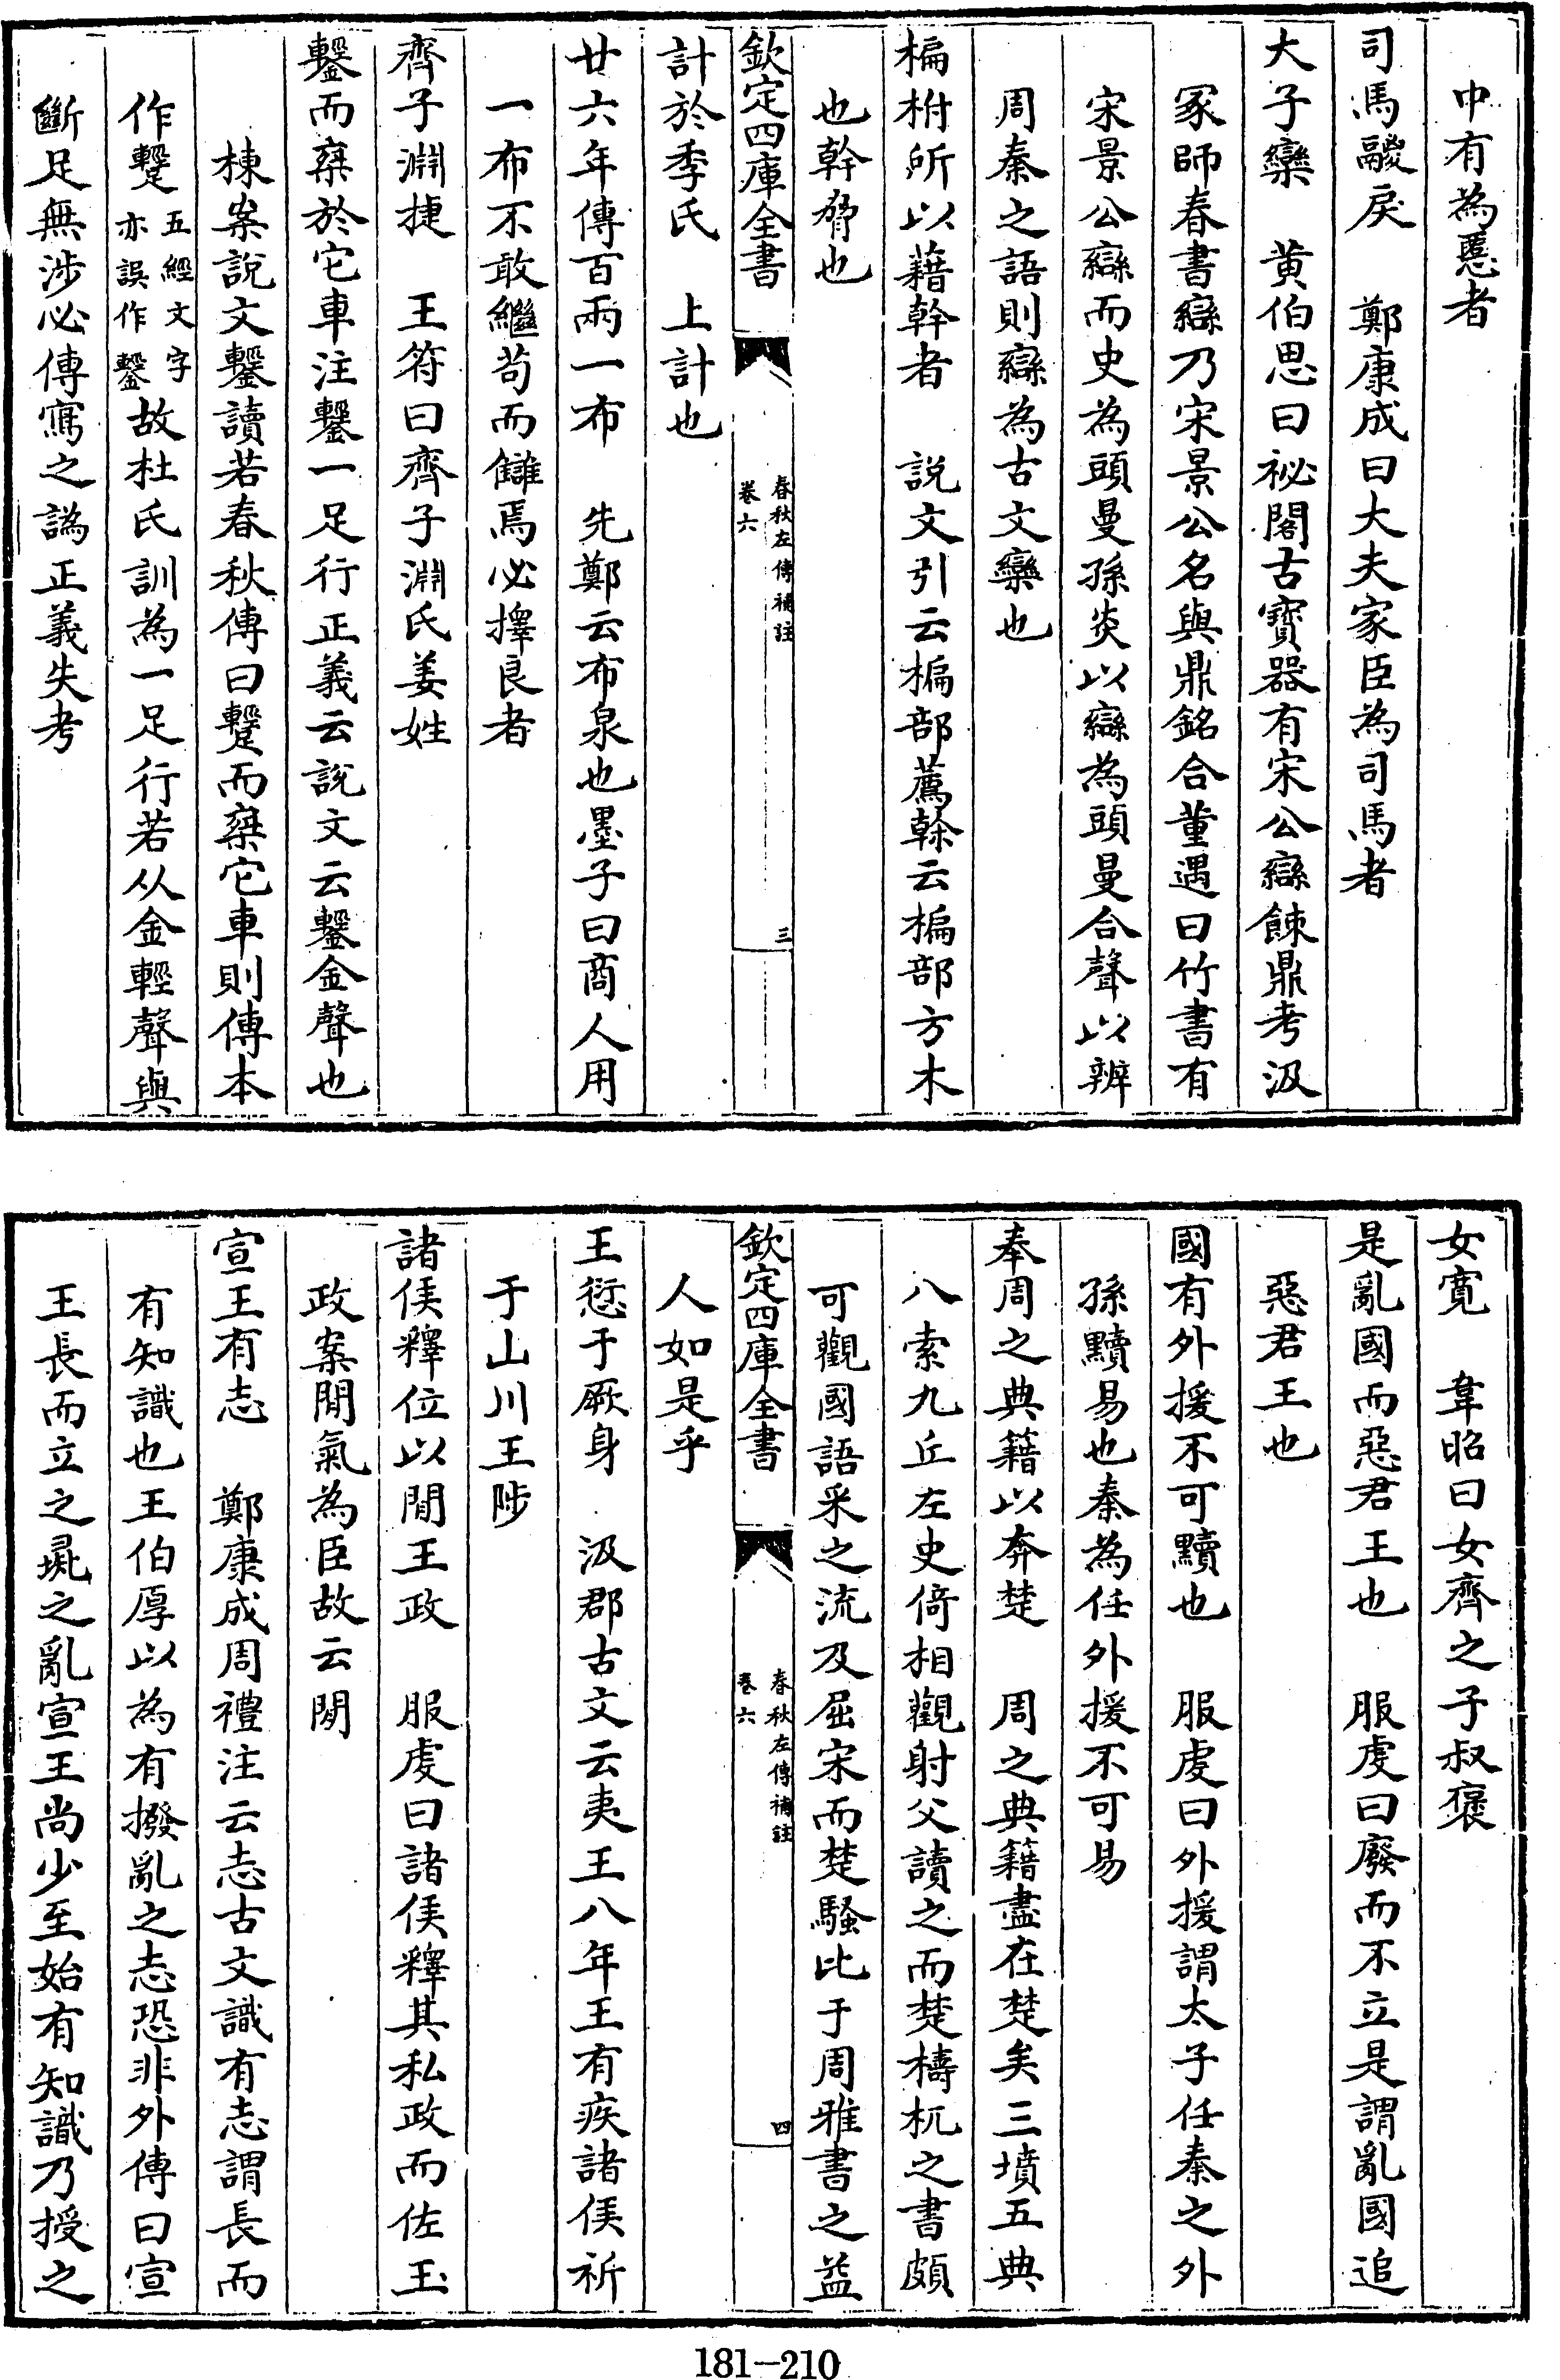 中有為慝者
司馬鬷戾　鄭康成曰大夫家臣為司馬者
大子欒　黄伯思曰祕閣古寶器有宋公䜌餗鼎考汲
冢師春書䜌乃宋景公名與鼎銘合董遇曰竹書有
宋景公䜌而史為頭曼孫炎以䜌為頭曼合聲以辨
周秦之語則䜌為古文欒也
楄柎所以藉幹者　説文引云楄部薦榦云楄部方木
也幹脅也
欽定四庫全書
春秋左傳補註
卷六
三
計於季氏　上計也
廿六年傳百兩一布　先鄭云布泉也墨子曰商人用
一布不敢繼苟而讎焉必擇良者
齊子淵捷　王符曰齊子淵氏姜姓
鑋而乘於它車注鑋一足行正義云説文云鑋金聲也
棟案説文鑋讀若春秋傳曰䠍而乘它車則傳本
作䠍五經文字亦誤作鑋故杜氏訓為一足行若从金輕聲與
斷足無涉必傳寫之譌正義失考
女寛　韋昭曰女齊之子叔褒
是亂國而惡君王也　服虔曰廢而不立是謂亂國追
惡君王也
國有外援不可黷也　服虔曰外援謂太子任秦之外
孫黷易也秦為任外援不可易
奉周之典籍以奔楚　周之典籍盡在楚矣三墳五典
八索九丘左史倚相觀射父讀之而楚檮杌之書頗
可觀國語采之流及屈宋而楚騷比于周雅書之益
欽定四庫全書
春秋左傳補註
卷六
四
人如是乎
王愆于厥身　汲郡古文云夷王八年王有疾諸侯祈
于山川王陟
諸侯釋位以閒王政　服虔曰諸侯釋其私政而佐王
政案閒氣為臣故云閒
宣王有志　鄭康成周禮注云志古文識有志謂長而
有知識也王伯厚以為有撥亂之志恐非外傳曰宣
王長而立之彘之亂宣王尚少至始有知識乃授之
181-210